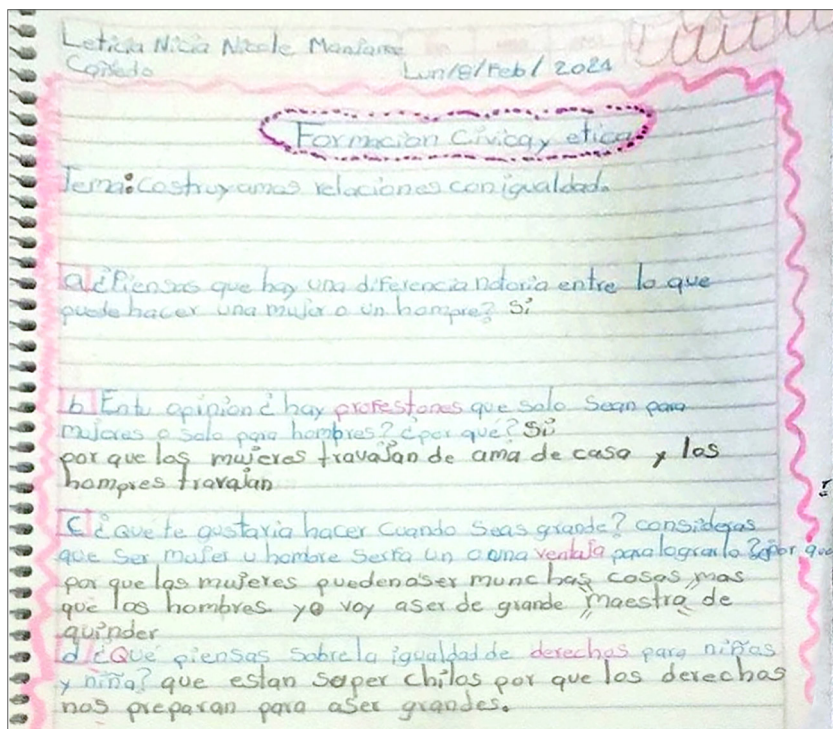 Leticia Nicia Nicole
Lun/8/Feb/2021
Formacion Civica y etica
Tema: costruyamos relaciones con igualdad.
a ¿Piensas que hay una diferencia notoria entre lo que
puede hacer una mujer o un hompre? Si
b En tu opinion ¿ hay profestones que solo sean para
mujeres o solo para hombres? ¿por qué? Si
por que las mujeres travajan de ama de casa y los
hompres travajan
c ¿Qué te gustaria hacer cuando seas grande? consideras
que ser mujer u hombre seria un o una ventaja para lograrlo? ¿por que
por que las mujeres pueden aser munchas cosas mas
que los hombres yo voy aser de grande "maestra" de
quinder
d ¿Qué piensas sobre la igualdad de derechos para niñas
y niña? que estan super chilos por que los derechos
nos preparan para aser grandes.